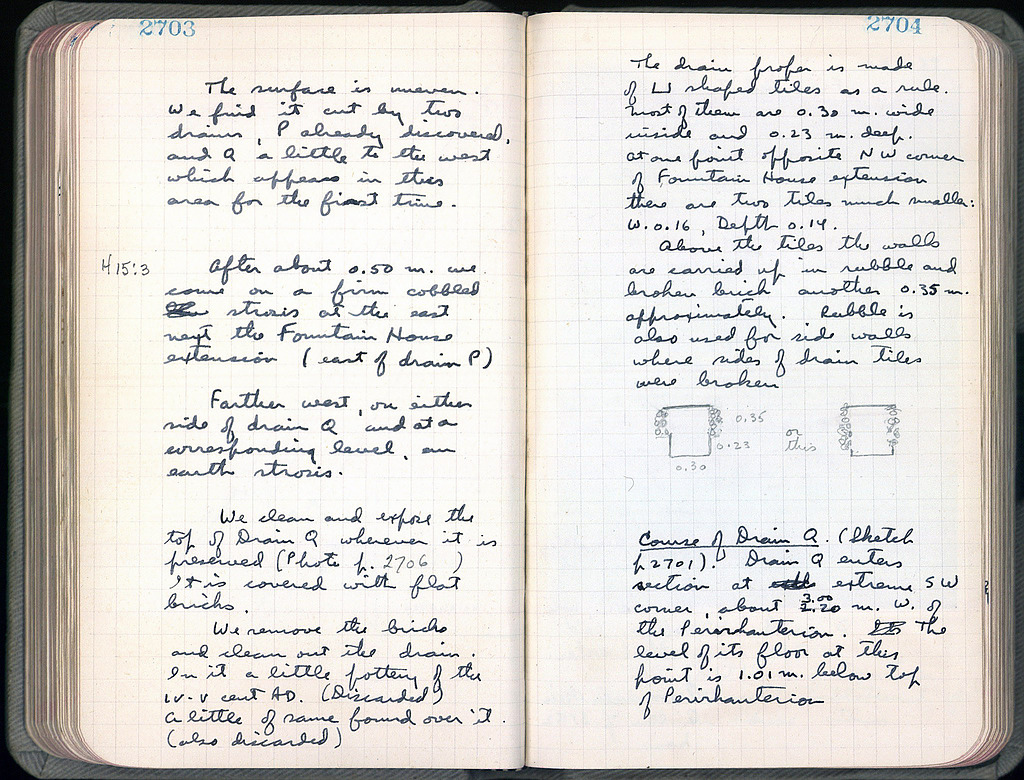 2703
The surface is uneven.
We find it cut by two
drains, P already discovered,
and Q a little to the west
which appears in this
area for the first time.
H 15:3
After about 0.50 m. we
come on a firm cobbled
strosis at the east
next the Fountain House
extension (east of drain P)
Farther west, on either
side of drain Q and at a
corresponding level, an
earth strosis.
We clean and expose the
top of Drain Q wherever it is
preserved (Photo p. 2706 )
It is covered with flat
bricks.
We remove the bricks
and clean out the drain.
In it a little pottery of the
IV-V cent AD. (Discarded)
A little of same found over it.
(also discarded)
2704
The drain proper is made
of ⊔ shaped tiles as a rule.
Most of them are 0.30 m. wide
inside and 0.23 m. deep.
At one point opposite NW corner
of Fountain House extension
there are two tiles much smaller:
W. 0.16, Depth 0.14.
Above the tiles the walls
are carried up in rubble and
broken brick another 0.35 m.
approximately. Rubble is
also used for side walls
where sides of drain tiles
were broken
0.35
0.23
0.30
or
this
Course of Drain Q. (Sketch
p. 2701). Drain Q enters
section at extreme SW
corner, about 3.00 m. W. of
the Perirrhanterion. The
level of its floor at this
point is 1.01 m. below top
of Perirrhanterion